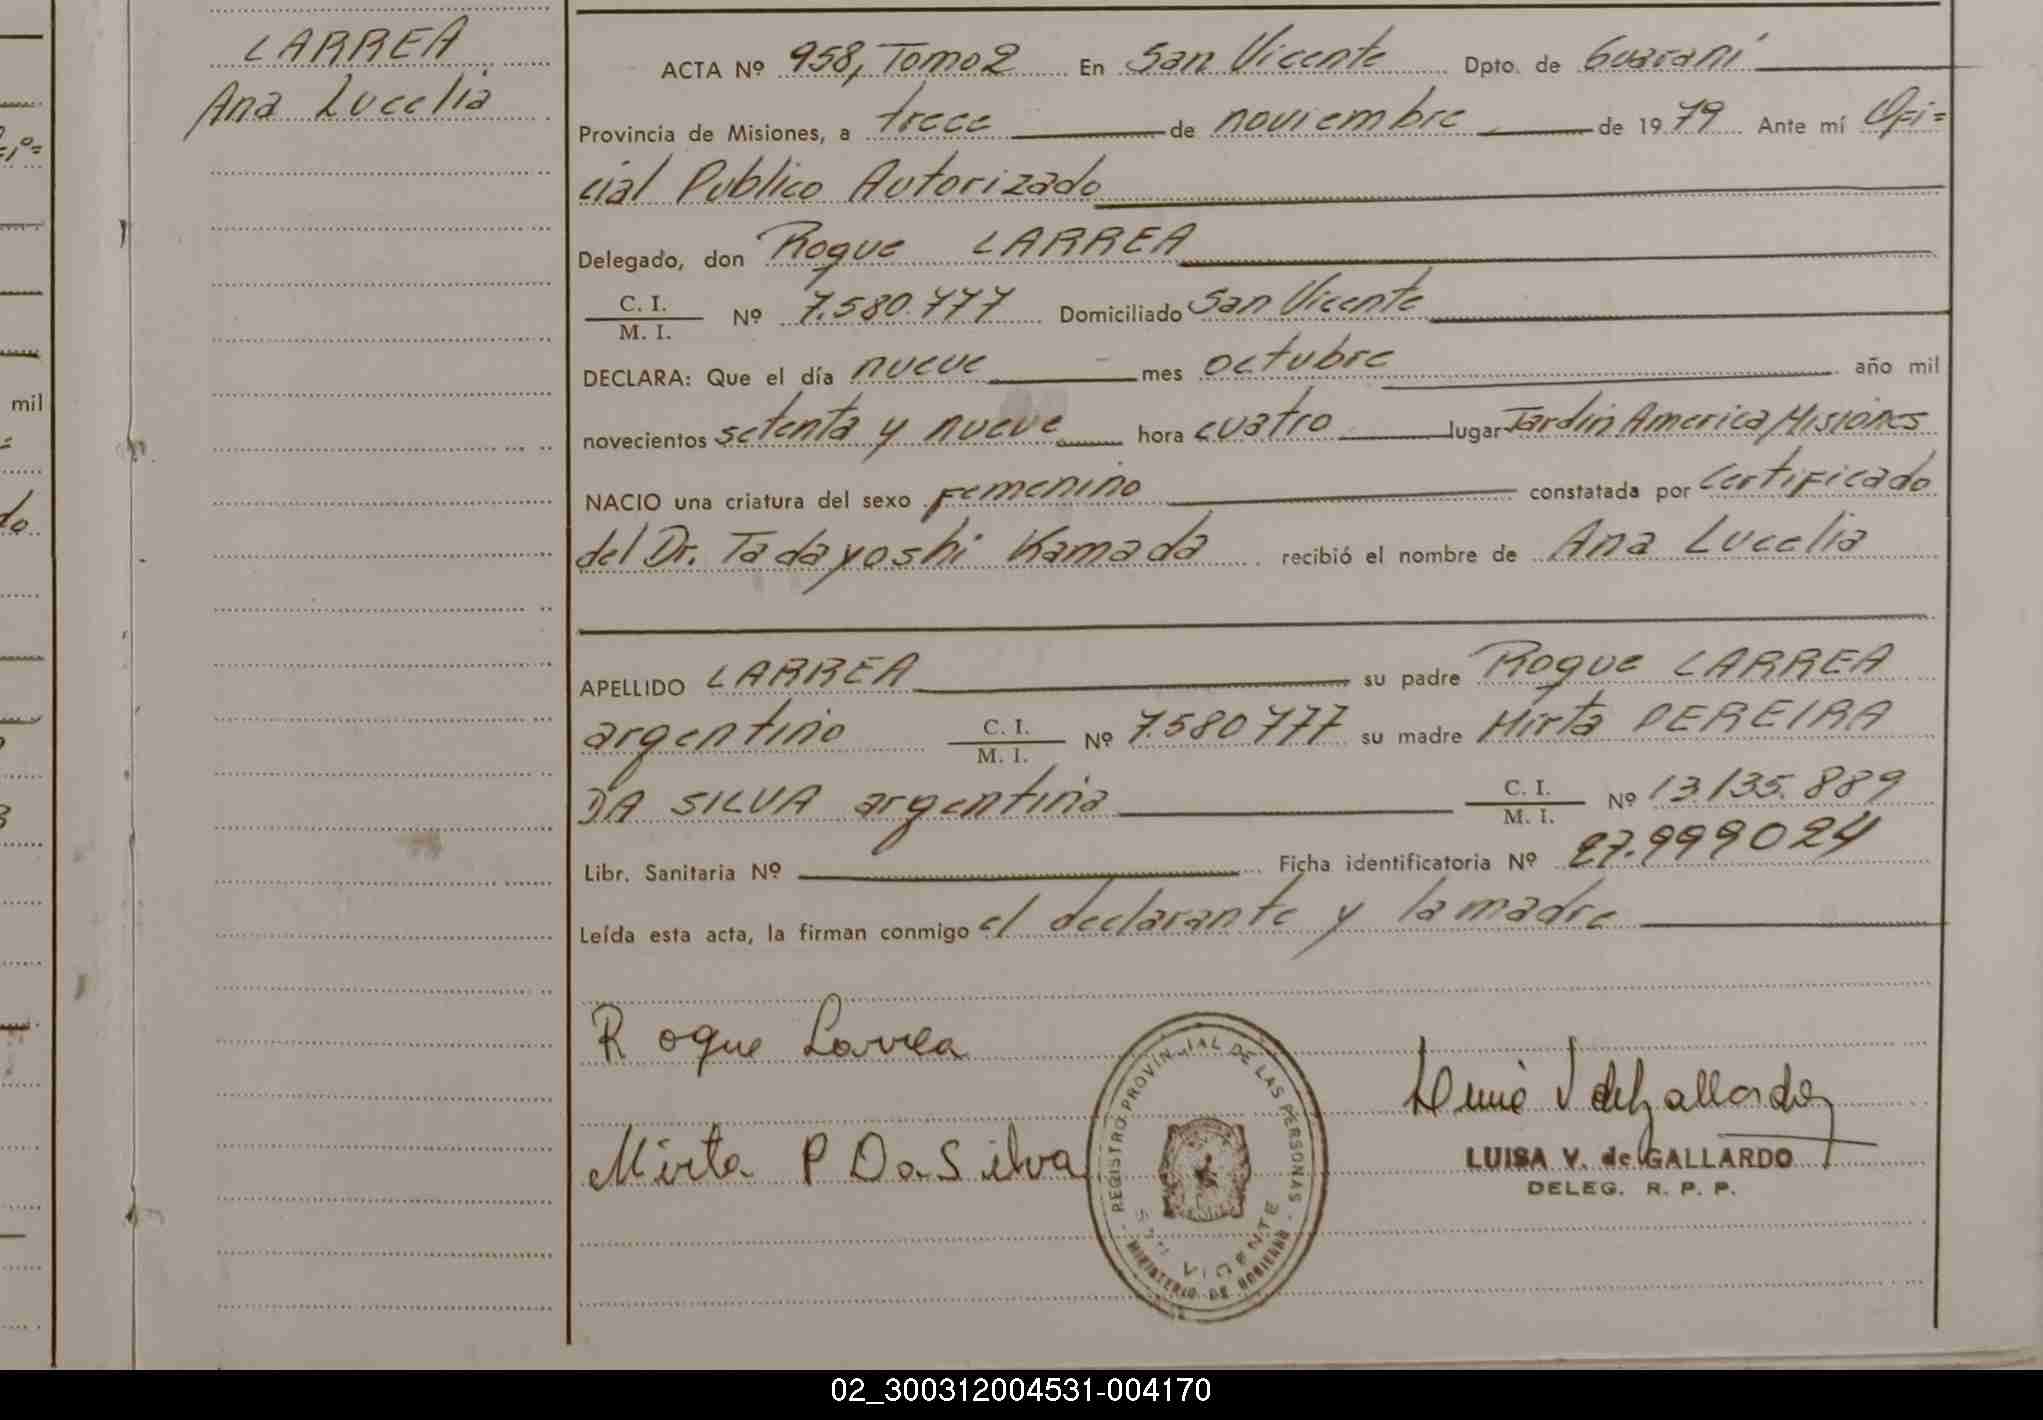 LARREA
Ana Lucelia
ACTA Nº 958, Tomo 2 En San Vicente Dpto. de Guaraní
Provincia de Misiones, a trece de noviembre de 1979 Ante mí Ofi=
cial Publico Autorizado
Delegado, don Roque LARREA
C. I.
M. I.
Nº 7.580.777 Domiciliado San Vicente
DECLARA: Que el día nueve mes octubre año mil
novecientos setenta y nueve hora cuatro lugar Jardín America, Misiones
NACIO una criatura del sexo Femenino constatada por Certificado
del Dr. Tadayoshi Kamada recibió el nombre de Ana Lucelia
APELLIDO LARREA su padre Roque LARREA
argentino C. I.
M. I.
Nº 7.580777 su madre Mirta PEREIRA
DA SILVA argentina C. I.
M. I.
Nº 13.135.889
Libr. Sanitaria Nº Ficha identificatoria Nº 27.999024
Leída esta acta, la firman conmigo el declarante y la madre
Roque Larrea
Mirta P Da Silva
REGISTRO PROVINCIAL DE LAS PERSONAS
MINISTERIO DE GOBIERNO
VICENTE
LUISA V. de GALLARDO
DELEG. R. P. P.
mil
02_300312004531-004170